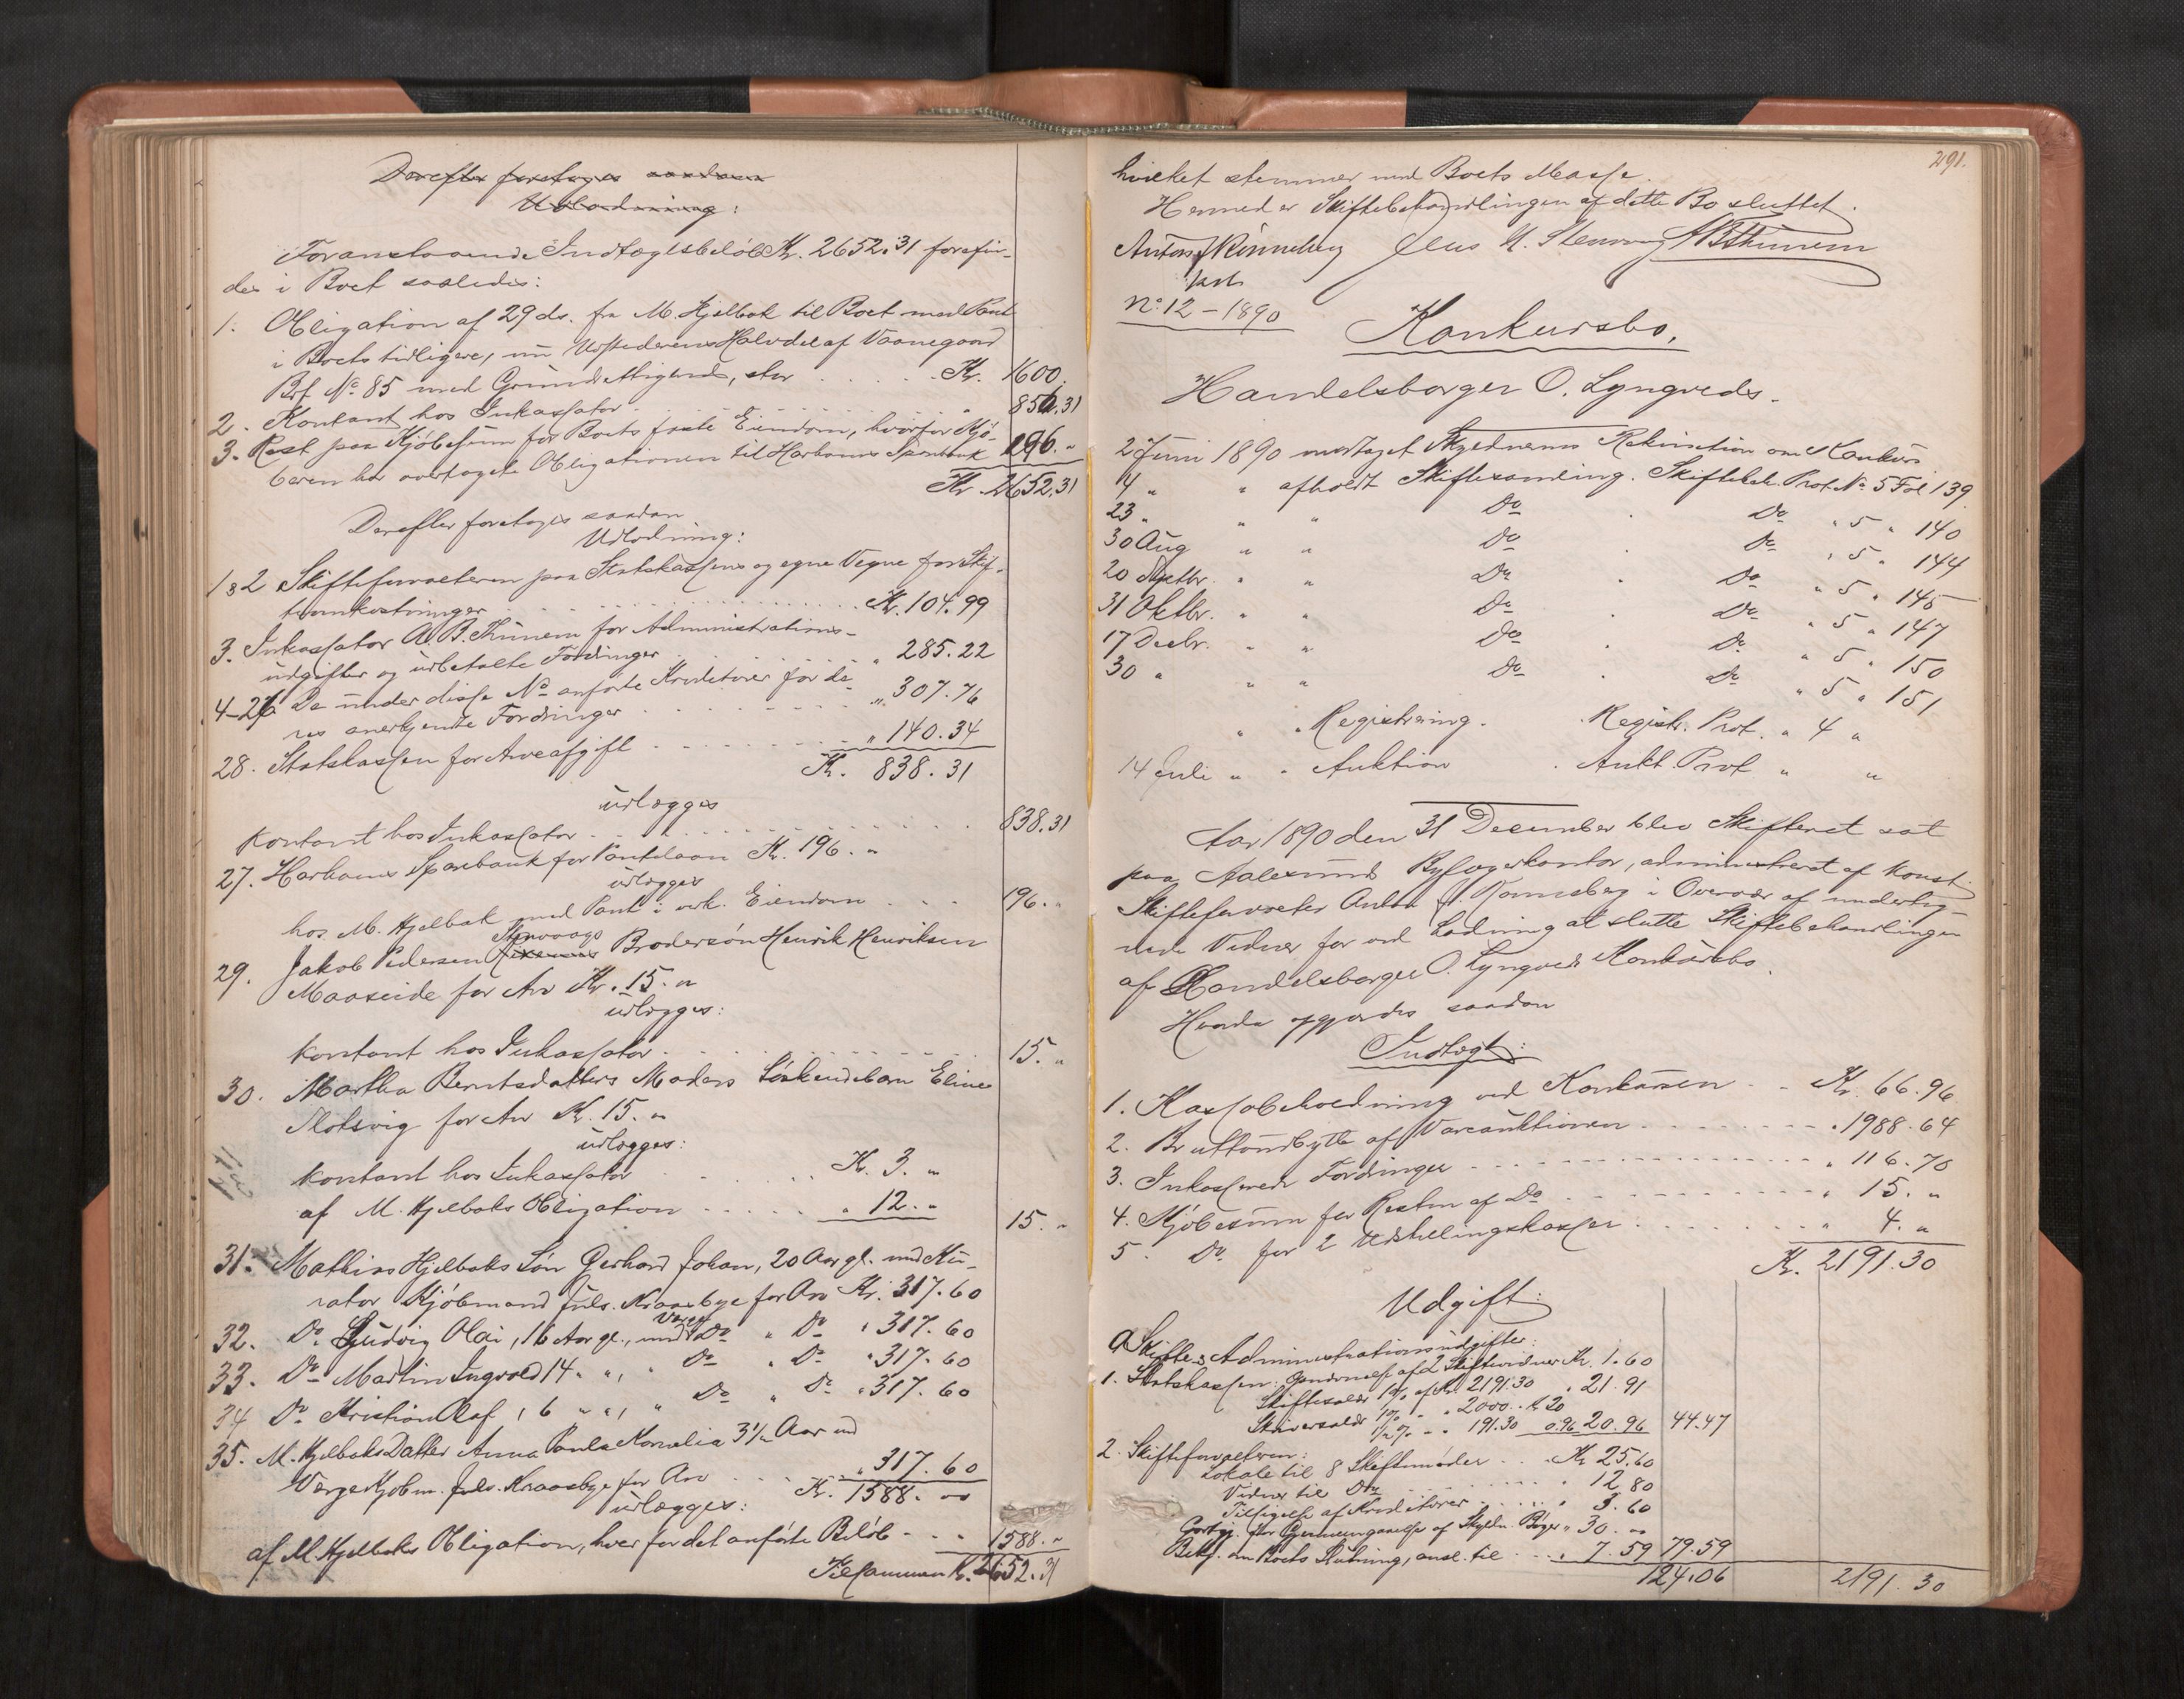 Derefter foretages saadan
Udlodning:
Foranstaaende Indtægtsbeløb Kr. 2652.31 forefin-
des i Boet saaledes:
1. Obligation af 29 ds. fra M. Hjelbak til Boet med Pant
i Boets tidligere, nu Udstederens Halvdel af Vaanegaard
Brf No 85 med Grundrettigheds, stor . . . . Kr. 1600.
2. Kontant hos Inkassator . . . . " 856.31
3. Rest paa Kjøbesum for Boets faste Eiendom, hvorfor Kjø-
beren har overtaget Obligationen til Harhams Sparebank 196. "
Kr. 2652.31
Derefter foretages saadan
Udlodning:
1 & 2 Skifteforvalteren paa Statskassens og egne Vegne for Skif-
teomkostninger . . . . Kr. 104.99
3. Inkassator A. B. Thunem for Administrations-
udgifter og udbetalte Fordringer . . . . " 285.22
4-26 De under disse No anførte Kreditorer for de-
res anerkjendte Fordringer . . . . " 307.76
28. Statskassen for Arveafgift . . . . " 140.34
Kr. 838.31
udlægges
kontant hos Inkassator . . . . 838.31
27. Harhams Sparebank for Pantelaan Kr. 196. "
udlægges
hos M. Hjelbak med Pant i ovk. Eiendom . . . 196. "
Stenvaags
29. Jakob Pedersen Brodersøn Henrik Henriksen
Maaseide for Arv Kr. 15. "
udlægges:
kontant hos Inkassator . . . . 15. "
30. Martha Berntsdatters Moders Søskendebarn Eline
Flotsvig for Arv Kr. 15. "
udlægges:
kontant hos Inkassator . . . . Kr. 3. "
af M. Hjelbaks Obligation . . . . " 12. "
15. "
31. Mathias Hjelbaks Søn Gerhard Johan, 20 Aar gl. med Ku-
rator Kjøbmand Juls. Kraasbye for Arv Kr. 317.60
Verge
32. Do Ludvig Olai, 16 Aar gl., med Do " Do " 317.60
33. Do Martin Ingvald 14 " ", " Do " Do " 317.60
34 Do Kristian Olaf, 6 " ", " Do " Do " 317.60
35. M. Hjelbaks Datter Anna Paula Kornelia 3 1/2 Aar med
Verge Kjøbm. Juls. Kraasbye for Arv . . . " 317.60
Kr. 1588. "
udlægges:
af M. Hjelbaks Obligation, hver for det anførte Beløb . . . 1588. "
Tilsammen Kr. 2652.31
291.
hvilket stemmer med Boets Masse.
Hermed er Skiftebehandlingen af dette Bo sluttet.
Anton Rønneberg Jens N. Stenvaag A B Thunem
kst
No 12 - 1890
Konkursbo.
Handelsborger O. Lyngveds.
2 Juni 1890 modtaget Skyldnerens Rekvisition om Konkurs
4 " " afholdt Skiftesamling. Skiftebeh. Prot. No 5 Fol 139
23 " " " Do . Do " 5 " 140
30 Aug " " Do . Do " 5 " 144
20 Septbr. " " Do . Do " 5 " 145
31 Oktbr. " " Do . Do " 5 " 147
17 Decbr. " " Do . Do " 5 " 150
30 " " " Do . Do " 5 " 151
" " Registrering. . Registr. Prot. " 4 "
14 Juli " " Auktion . Aukt. Prot " "
Aar 1890 den 31 December blev Skifteret sat
paa Aalesund Byfogedkontor, administreret af konst.
Skifteforvalter Anton Rønneberg i Overvær af underteg-
nede Vidner for ved Lodning at slutte Skiftebehandlingen
af Handelsborger O. Lyngveds Konkursbo.
Hvorda opgjordes saadan
Indtægt:
1. Kassabeholdning ved Konkursen . . Kr. 66.96
2. Bruttoudbytte af Vareauktionen . . . . " 1988.64
3. Inkasserede Fordringer . . . . " 116.70
4. Kjøbesum for Resten af Do . . . . " 15. "
5. Do for 2 Udstillingskasser . . . . " 4. "
Kr. 2191.30
Udgift:
a. Skifte & Administrationsudgifter:
1. Statskassen: af 2 Skiftevidner Kr. 1.60
Skiftesalær 1% af Kr. 2191.30 " 21.91
Skriversalær 1% " " 2000. . k 20
1/2 % " " 191.30 0.96 20.96 44.47
2. Skifteforvalteren:
Lokale til 8 Skiftemøder . . . Kr 25.60
Vidner til Do . . . . " 12.80
Tilsigelse af Kreditorer . . . . " 3.60
Godtgj. for Gjennemgaaelse af Skyldn. Bøger " 30. "
Bekj. om Boets Slutning, ansl. til . . . " 7.59 79.59
124.06 2191.30